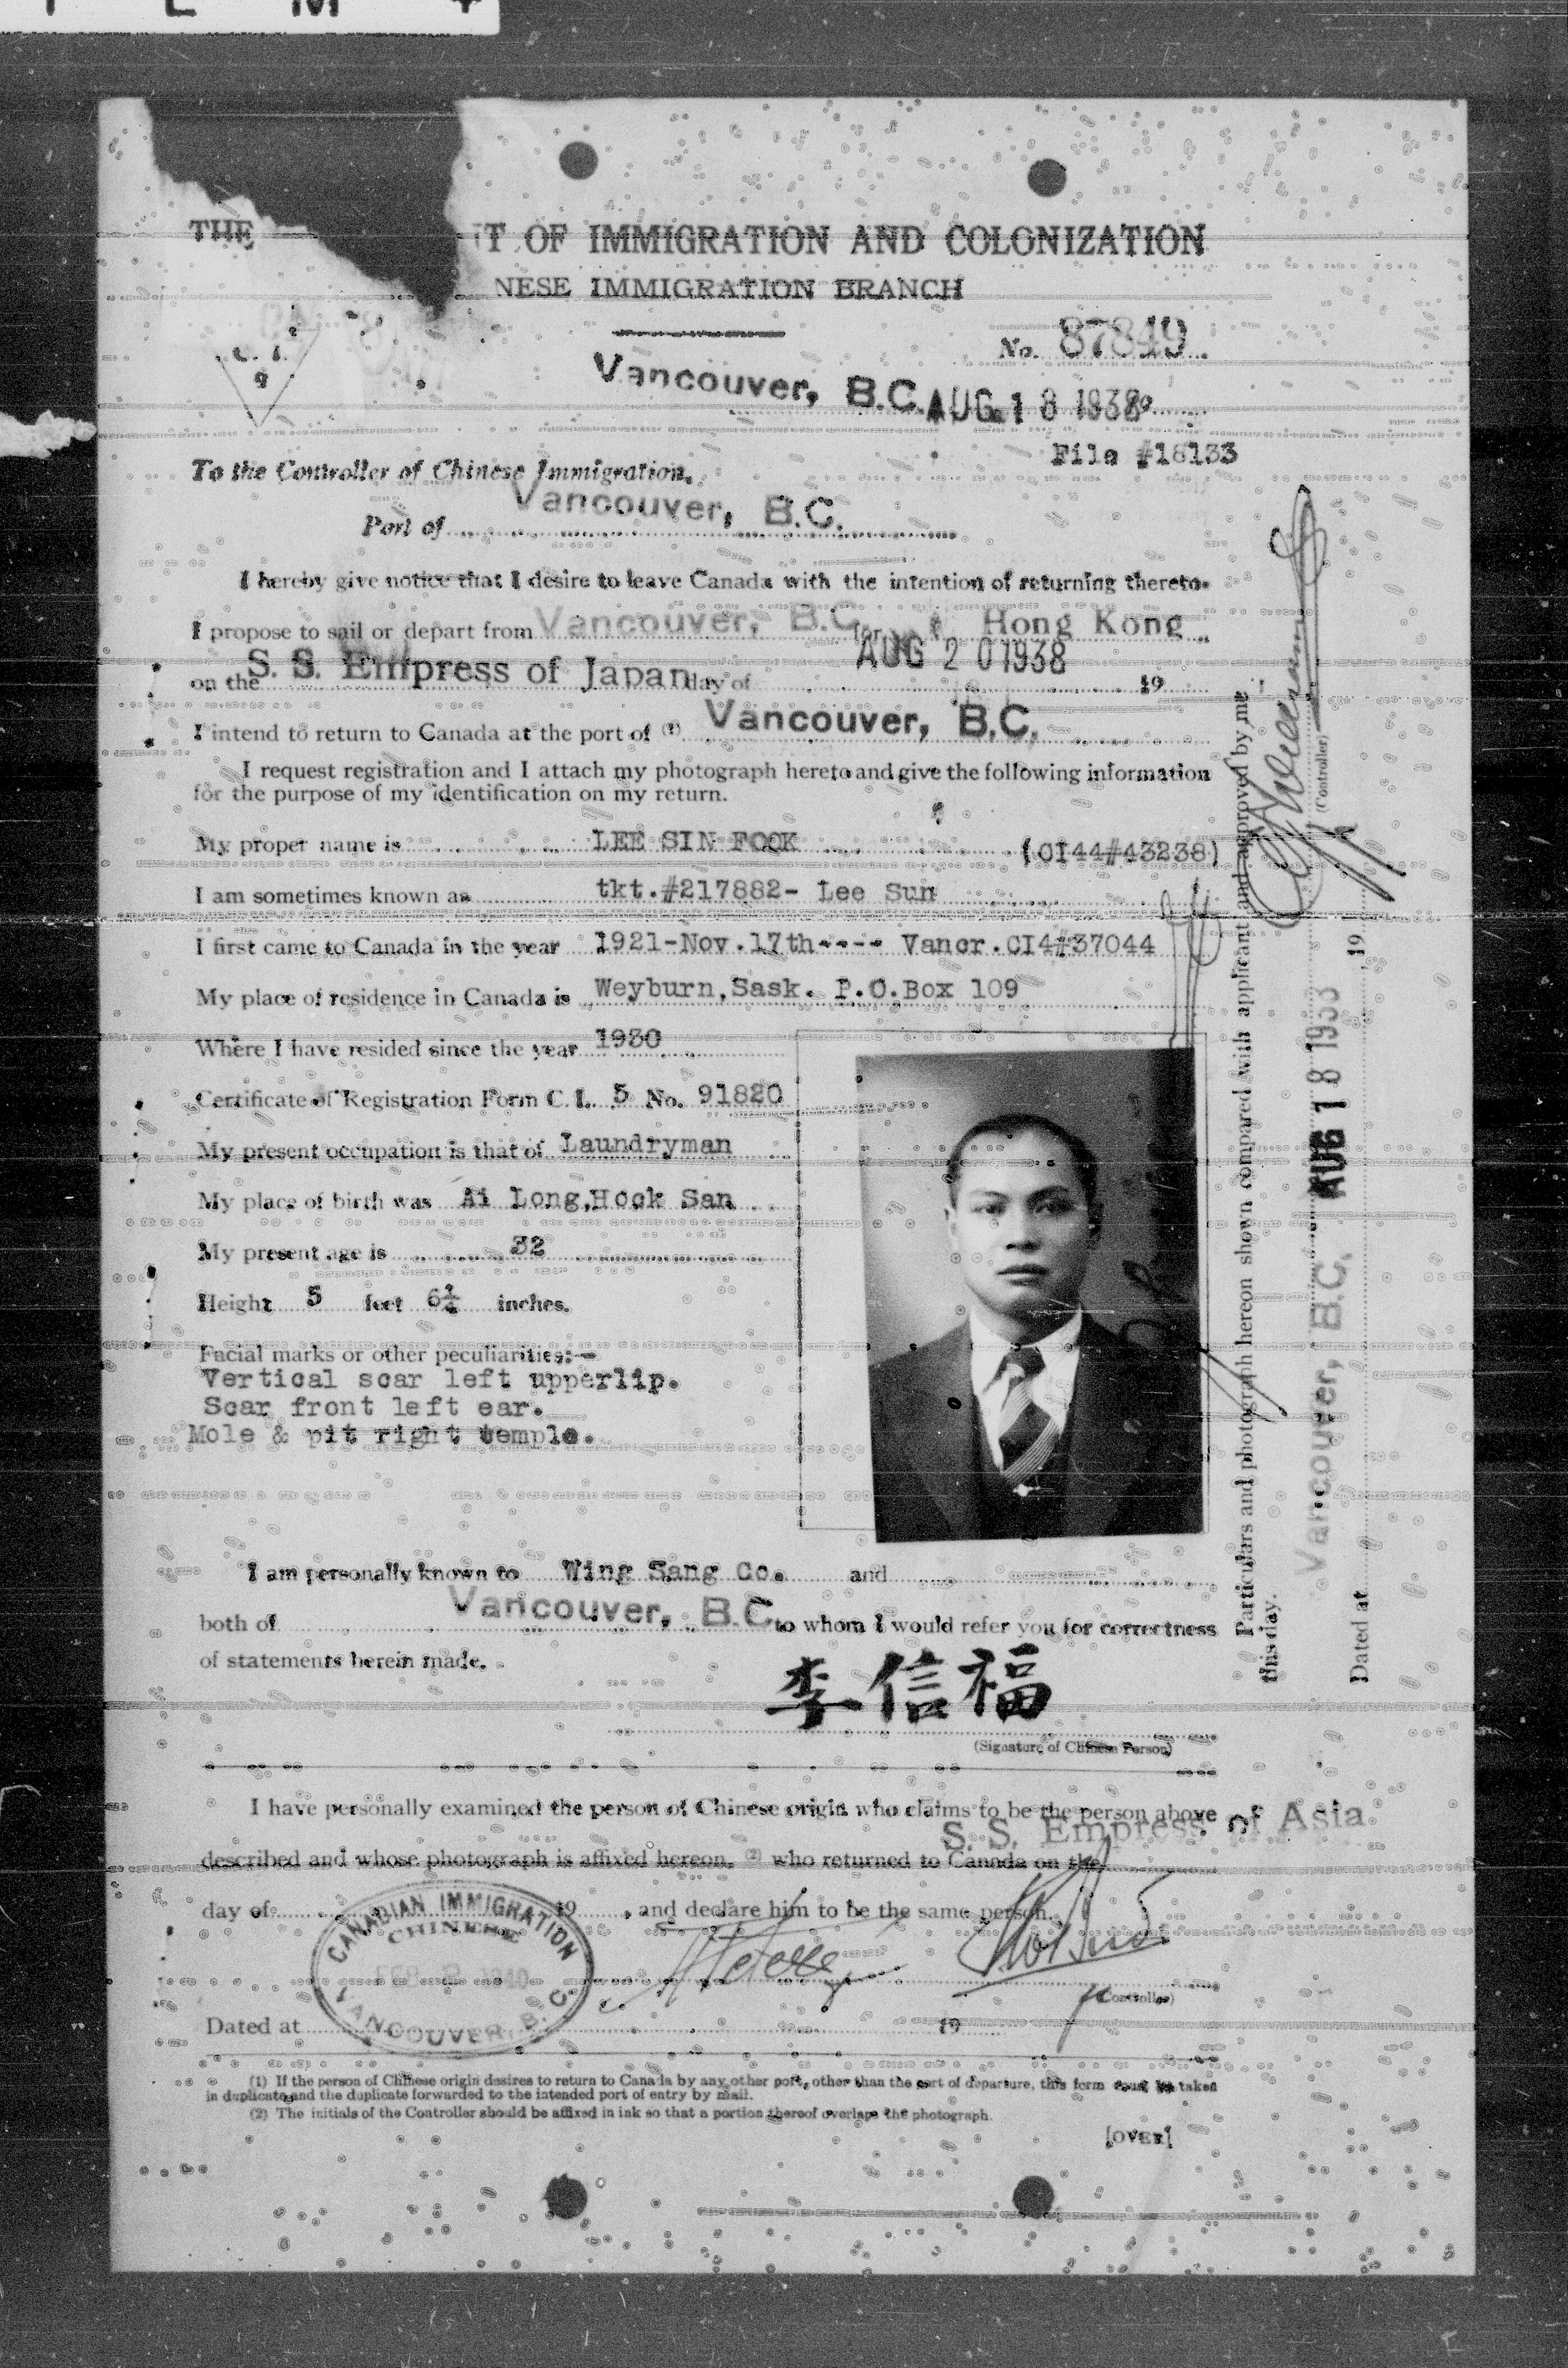 THE T OF IMMIGRATION AND COLONIZATION
NESE IMMIGRATION BRANCH
C. I.
9
No. 87849
Vancouver, B.C. AUG 18 1938
File #18133
To the Controller of Chinese Immigration,
Port of Vancouver, B.C.
I hereby give notice that I desire to leave Canada with the intention of returning thereto.
I propose to sail or depart from Vancouver, B.C. for Hong Kong
on the S. S. Empress of Japan day of AUG 20 1938 19
I intend to return to Canada at the port of (1) Vancouver, B.C.
I request registration and I attach my photograph hereto and give the following information
for the purpose of my identification on my return.
My proper name is LEE SIN FOOK (CI44#43238)
I am sometimes known as tkt.#217882- Lee Sun
I first came to Canada in the year 1921-Nov.17th---- Vancr.CI4#37044
My place of residence in Canada is Weyburn,Sask. P.O.Box 109
Where I have resided since the year 1930
Certificate of Registration Form C. I. 5 No. 91820
My present occupation is that of Laundryman
My place of birth was Ai Long,Hock San
My present age is 32
Height 5 feet 6¼ inches.
Facial marks or other peculiarities:—
Vertical scar left upperlip.
Scar front left ear.
Mole & pit right temple.
I am personally known to Wing Sang Co. and
both of Vancouver, B.C. to whom I would refer you for correctness
of statements herein made.
李信福
(Signature of Chinese Person)
I have personally examined the person of Chinese origin who claims to be the person above
S. S. Empress of Asia
described and whose photograph is affixed hereon, (2) who returned to Canada on the
day of 19 , and declare him to be the same person.
CANADIAN IMMIGRATION
CHINESE
FEB 1940
VANCOUVER, B. C.
(Controller)
Dated at 19
(1) If the person of Chinese origin desires to return to Canada by any other port, other than the port of departure, this form must be taken
in duplicate and the duplicate forwarded to the intended port of entry by mail.
(2) The initials of the Controller should be affixed in ink so that a portion thereof overlaps the photograph.
[OVER]
Particulars and photograph hereon shown compared with applicant and approved by me
this day.
(Controller)
Vancouver, B.C. AUG 18 1938
Dated at 19